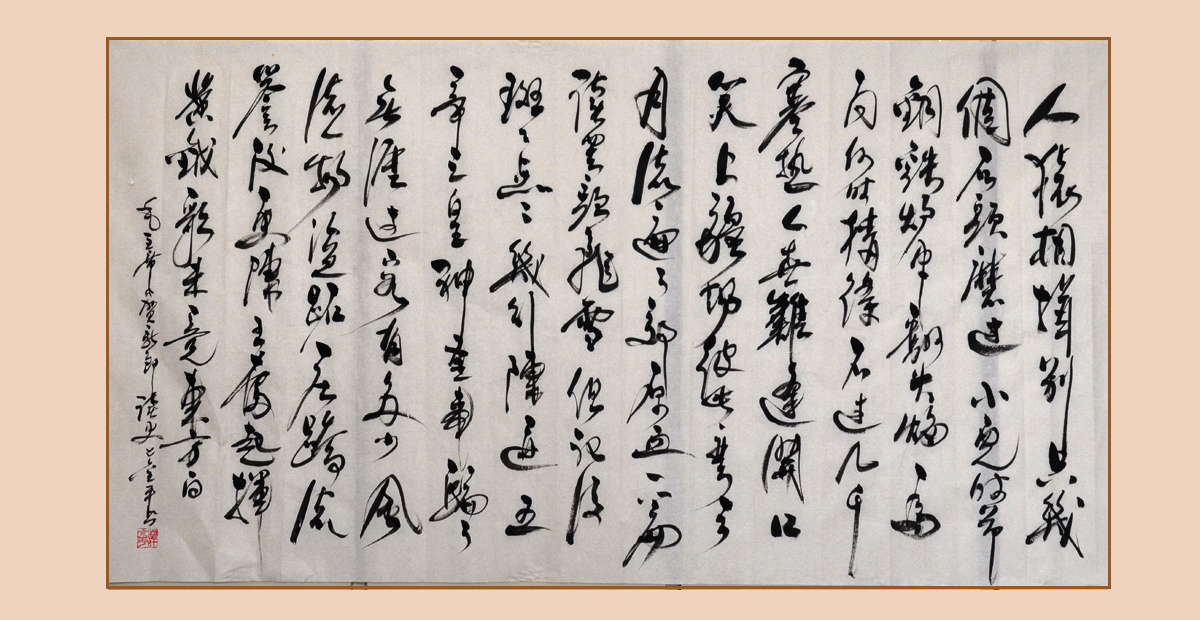 人猿相揖别只幾
個石頭磨过小兒时节
銅鉄炉中翻火焰為
问何时猜得不过几千
寒热人世難逢開口
笑上疆場彼此弯弓
月流遍了郊原血一篇
读罢頭飛雪但记得
斑斑点点幾行陳迹五
帝三皇神圣事騙了
無涯过客有多少風
流人物盗跖庄蹻流
誉後更陳王奮起揮
黄鉞歌未竟東方白
毛主席贺新郎读史